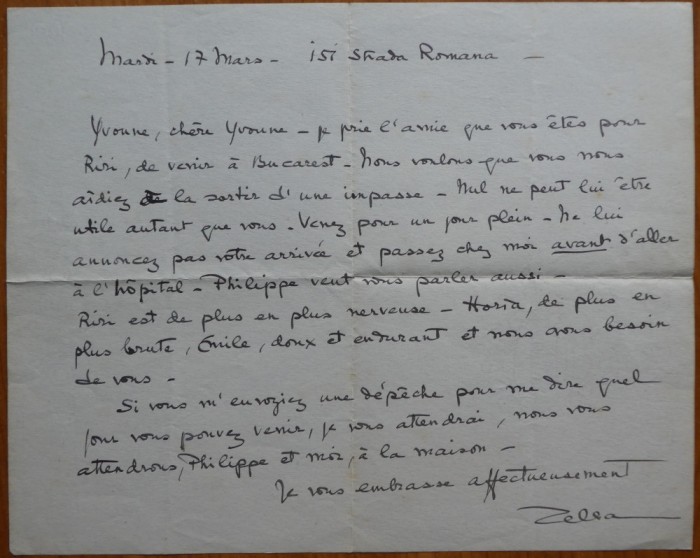 Mardi - 17 Mars - 151 Strada Romana -
Yvonne, chère Yvonne - je prie l'amie que vous êtes pour
Riri, de venir à Bucarest - Nous voulons que vous nous
aidiez à la sortir d'une impasse - Nul ne peut lui être
utile autant que vous - Venez pour un jour plein - Ne lui
annoncez pas votre arrivée et passez chez moi avant d'aller
à l'hôpital - Philippe veut vous parler aussi -
Riri est de plus en plus nerveuse - Horia, de plus en
plus brute, Emile, doux et endurant et nous avons besoin
de vous -
Si vous m'envoyiez une dépêche pour me dire quel
jour vous pouvez venir, je vous attendrai, nous vous
attendrons, Philippe et moi, à la maison -
Je vous embrasse affectueusement